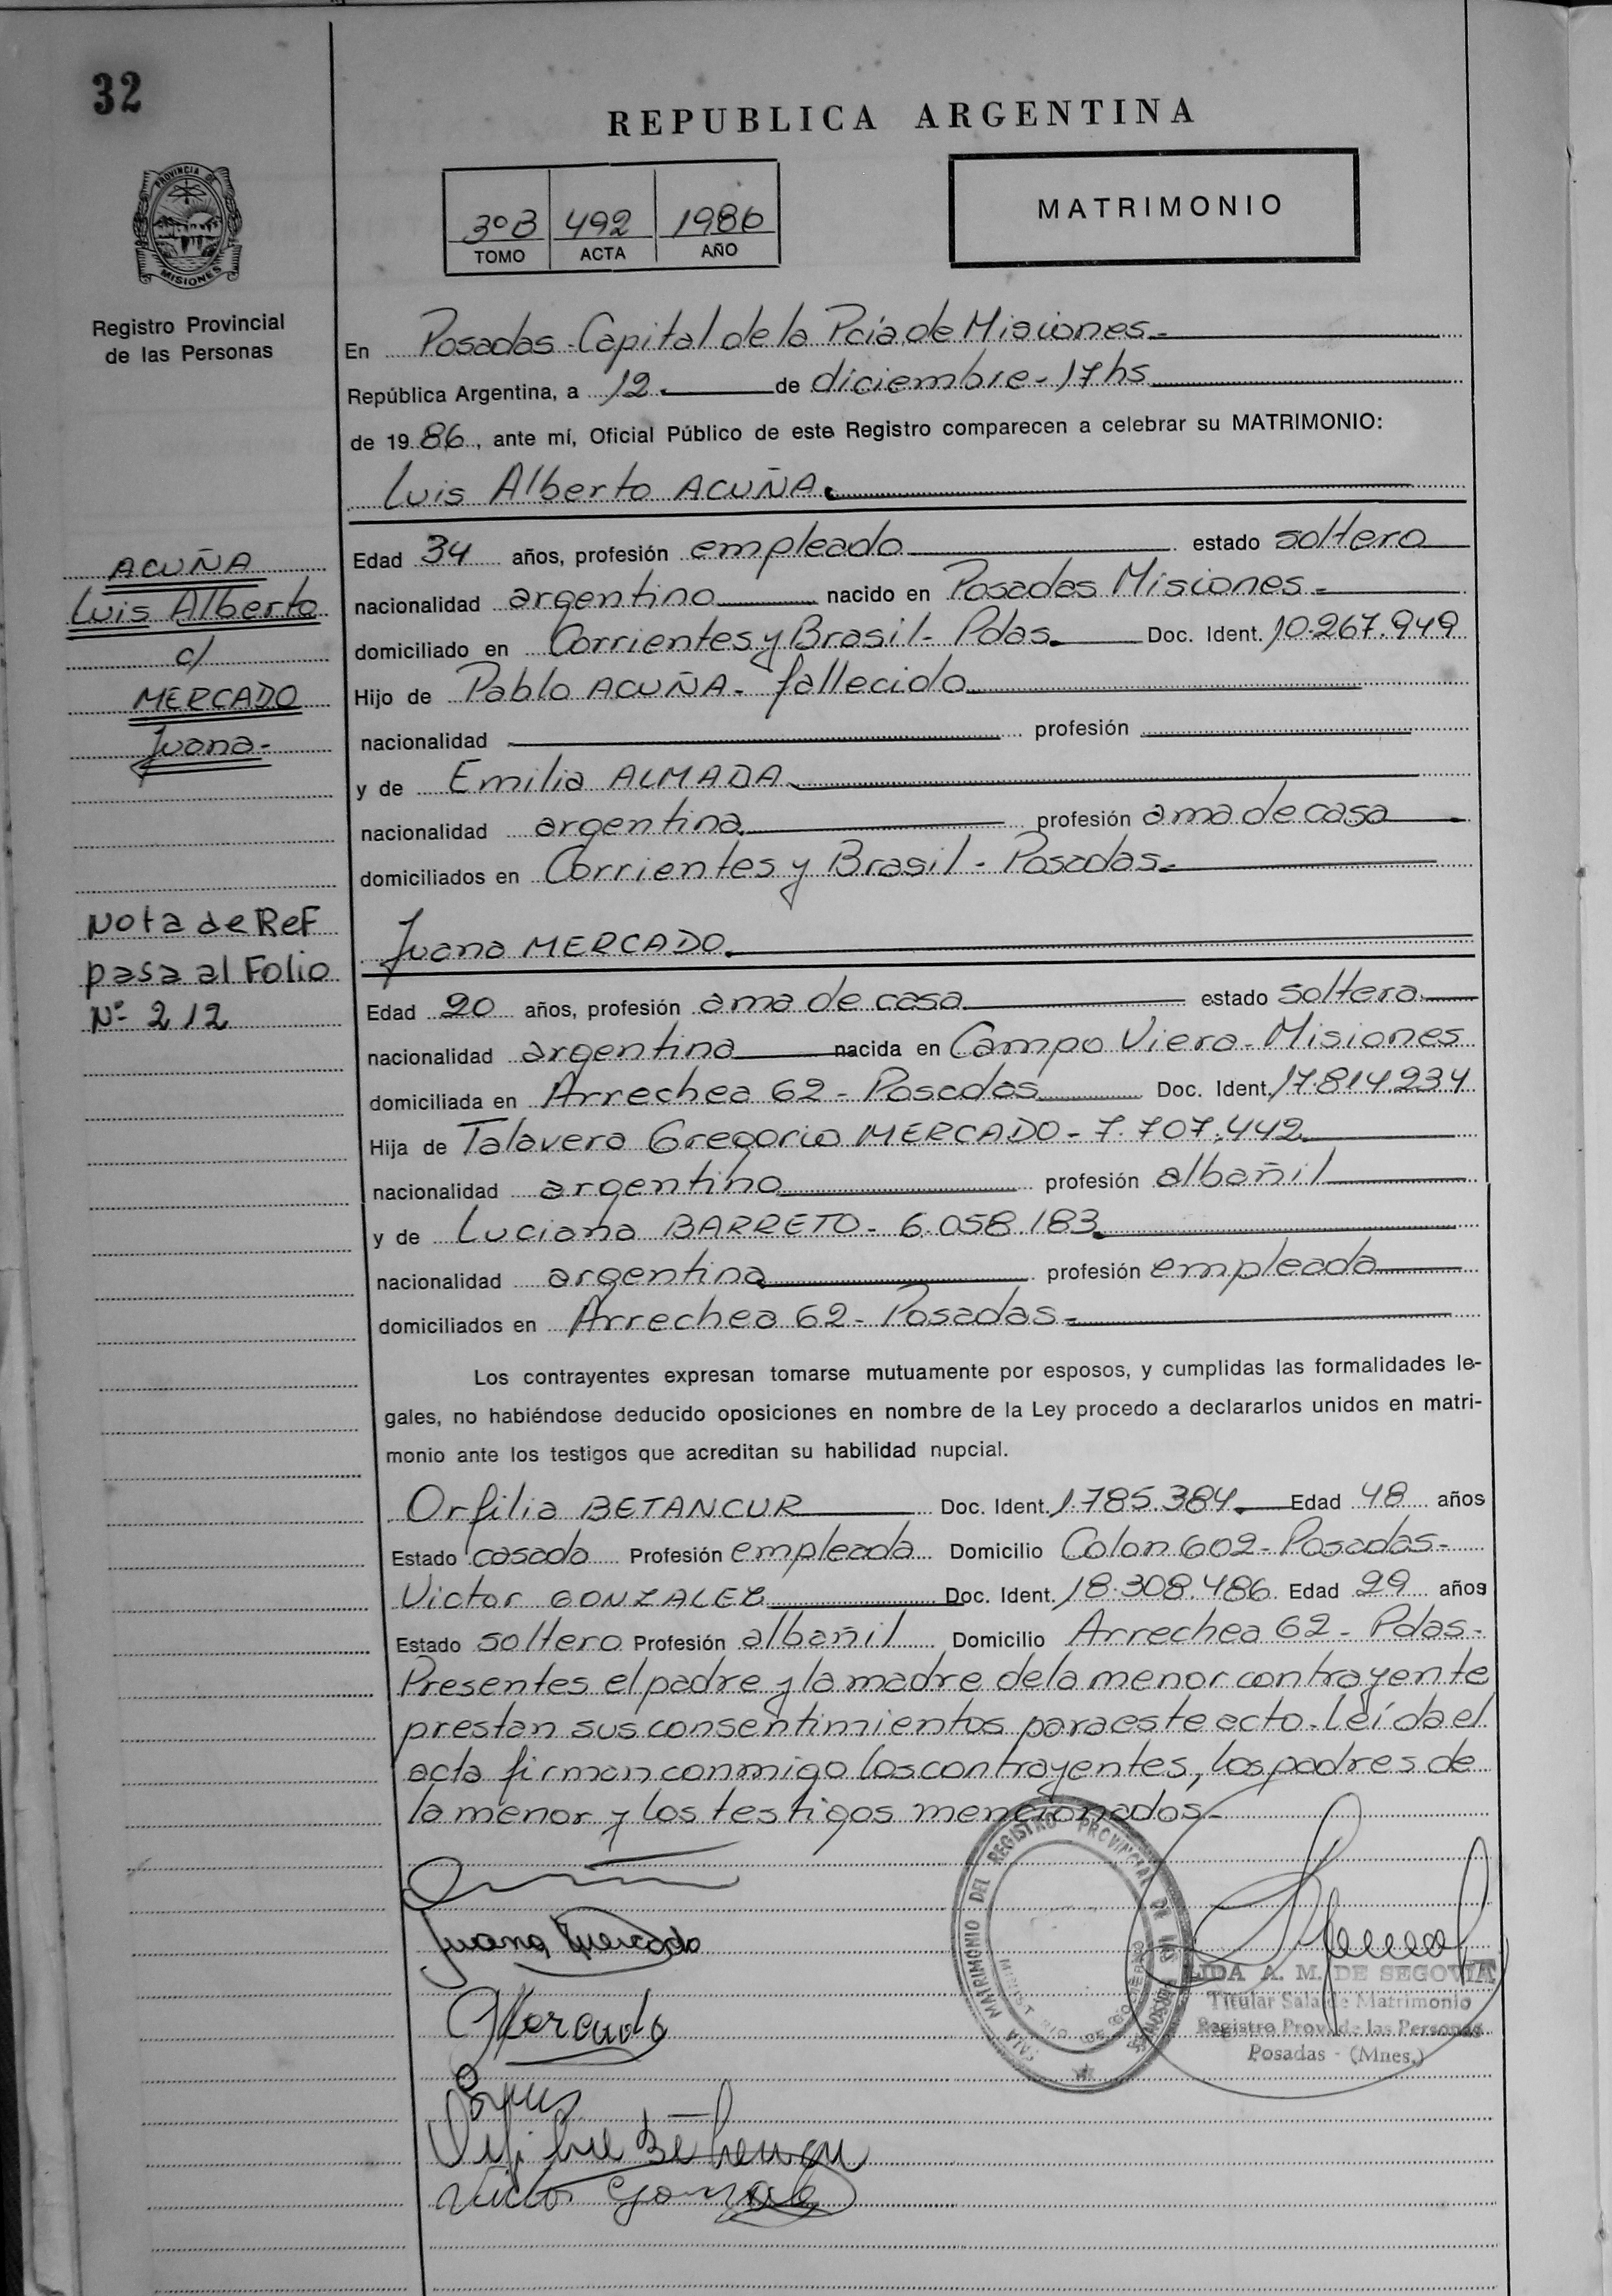 32
REPUBLICA ARGENTINA
PROVINCIA DE
MISIONES
Registro Provincial
de las Personas
3º B 492 1986
TOMO ACTA AÑO
MATRIMONIO
En Posadas - Capital de la Pcia de Misiones -
República Argentina, a 12 de diciembre - 17 hs
de 19 86, ante mí, Oficial Público de este Registro comparecen a celebrar su MATRIMONIO:
Luis Alberto ACUÑA
Edad 34 años, profesión empleado estado soltero
nacionalidad argentino nacido en Posadas Misiones -
domiciliado en Corrientes y Brasil - Pdas. Doc. Ident. 10.267.949
Hijo de Pablo ACUÑA - fallecido
nacionalidad profesión
y de Emilia ALMADA
nacionalidad argentina profesión ama de casa
domiciliados en Corrientes y Brasil - Posadas -
ACUÑA
Luis Alberto
c/
MERCADO
Juana -
Nota de Ref
pasa al Folio
Nº 212
Juana MERCADO
Edad 20 años, profesión ama de casa estado soltera
nacionalidad argentina nacida en Campo Viera - Misiones
domiciliada en Arrechea 62 - Posadas Doc. Ident. 17.814.234
Hija de Talavera Gregorio MERCADO - 7.707.442
nacionalidad argentino profesión albañil
y de Luciana BARRETO - 6.058.183
nacionalidad argentina profesión empleada
domiciliados en Arrechea 62 - Posadas -
Los contrayentes expresan tomarse mutuamente por esposos, y cumplidas las formalidades le-
gales, no habiéndose deducido oposiciones en nombre de la Ley procedo a declararlos unidos en matri-
monio ante los testigos que acreditan su habilidad nupcial.
Orfilia BETANCUR Doc. Ident. 1.785.384 Edad 48 años
Estado casada Profesión empleada Domicilio Colon 602 - Posadas -
Victor GONZALEZ Doc. Ident. 18.308.486 Edad 29 años
Estado soltero Profesión albañil Domicilio Arrechea 62 - Pdas -
Presentes el padre y la madre de la menor contrayente
prestan sus consentimientos para este acto. Leída el
acta firman conmigo los contrayentes, los padres de
la menor y los testigos mencionados -
Juana Mercado
Mercado
Victor Gonzalez
SALA MATRIMONIO DEL REGISTRO PROVINCIAL DE LAS PERSONAS
LIDA A. M. DE SEGOVIA
Titular Sala de Matrimonio
Registro Prov. de las Personas
Posadas - (Mnes.)